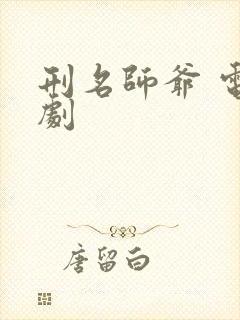 刑名師爺 電
劇
唐留白